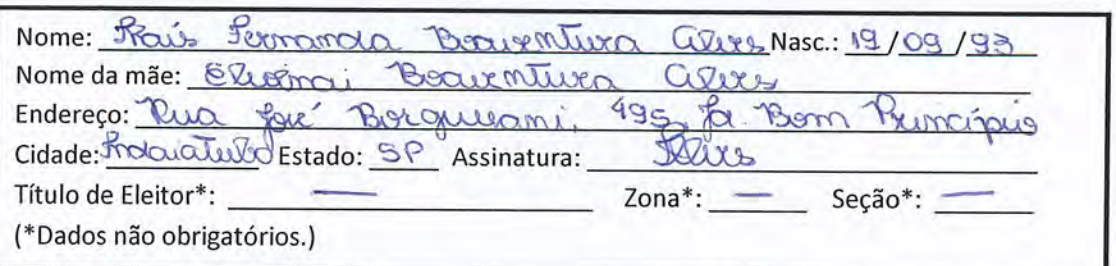 Nome: Thais Fernanda Boaventura Alves Nasc.: 19/09/93
Nome da mãe: Boaventura Alves
Endereço: Rua José 495, Jd. Bom Princípio
Cidade: Indaiatuba Estado: SP Assinatura: Alves
Título de Eleitor*: — Zona*: — Seção*: —
(*Dados não obrigatórios.)